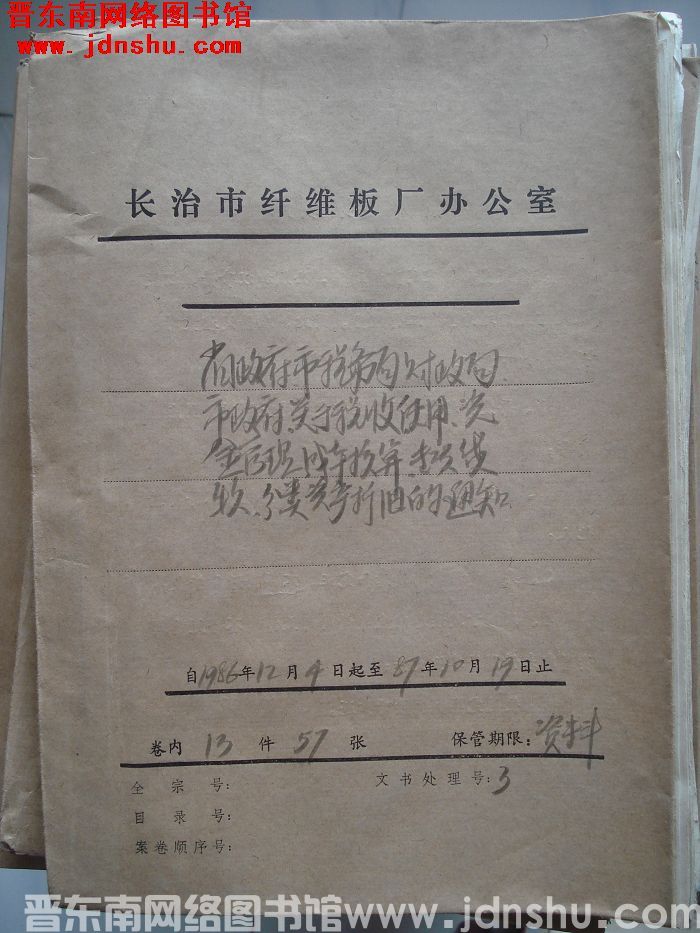 晋东南网络图书馆
www.jdnshu.com
长治市纤维板厂办公室
省政府市税务局财政局
市政府关于税收使用、资
金管理、成本核算、
分类资产折旧的通知
自1986年12月4日起至87年10月19日止
卷内 13 件 57 张 保管期限:资料
全宗号: 文书处理号:3
目录号:
案卷顺序号:
晋东南网络图书馆www.jdnshu.com